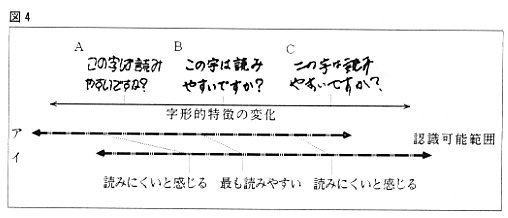 図4
A
この字は読み
やすいですか?
B
この字は読み
やすいですか?
C
この字は読み
やすいですか?
字形的特徴の変化
ア
認識可能範囲
イ
読みにくいと感じる
最も読みやすい
読みにくいと感じる